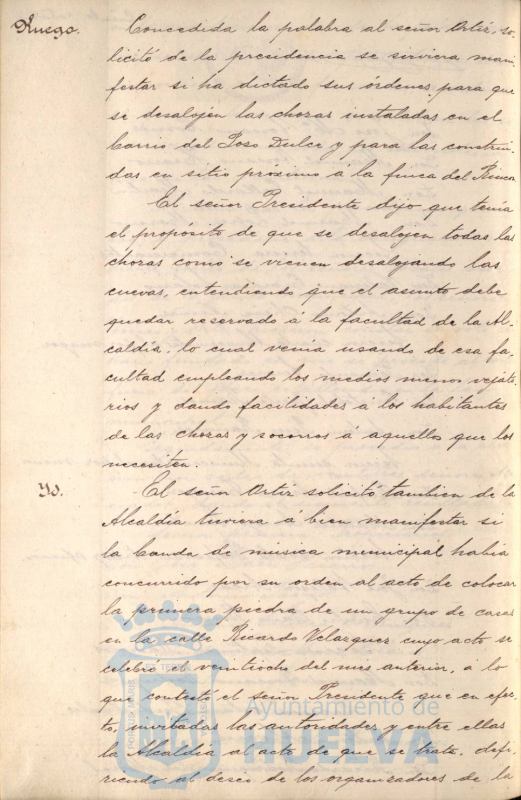 Ruego. Concedida la palabra al señor Ortiz, so-
licitó de la presidencia se sirviera mani-
festar si ha dictado sus órdenes para que
se desalojen las chozas instaladas en el
barrio del Poso Dulce y para las construi-
das en sitio próximo á la finca del Rincon
El señor Presidente dijo que tenia
el propósito de que se desalojen todas las
chozas como se vienen desalojando las
cuevas, entendiendo que el asunto debe
quedar reservado á la facultad de la Al-
caldia, lo cual venia usando de esa fa-
cultad empleando los medios menos vejato-
rios y dando facilidades á los habitantes
de las chozas y socorros á aquellos que los
necesiten.
Yd. El señor Ortiz solicitó tambien de la
Alcaldia tuviera á bien manifestar si
la banda de música municipal habia
concurrido por su orden al acto de colocar
la primera piedra de un grupo de casas
en la calle Ricardo Velazquez cuyo acto se
celebró el veintiocho del mes anterior, á lo
que contestó el señor Presidente que en efec-
to, invitadas las autoridades y entre ellas
la Alcaldia al acto de que se trata, defi-
riendo al deseo de los organizadores de la
Ayuntamiento de
HUELVA